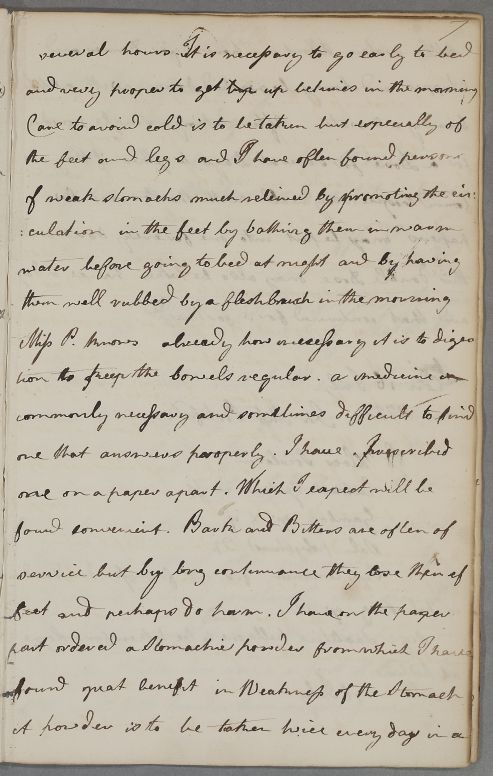 7
several hours. It is necessary to go early to bed
and very proper to get up betimes in the morning
Care to avoid cold is to be taken but especially of
the feet and legs and I have often found persons
of weak stomachs much relieved by promoting the cir:
:culation in the feet by bathing them in warm
water before going to bed at night and by having
them well rubbed by a fleshbrush in the morning
Miss P. knows already how necessary it is to diges
tion to keep the bowels regular. a medicine is
commonly necessary and sometimes difficult to find
one that answers properly. I have prescribed
one on a paper apart. Which I expect will be
found convenient. Bark and Bitters are often of
service but by long continuance they lose their ef
fect and perhaps do harm. I have on the paper
part ordered a Stomachic powder from which I have
found great benefit in Weakness of the Stomach
A powder is to be taken twice every day in a